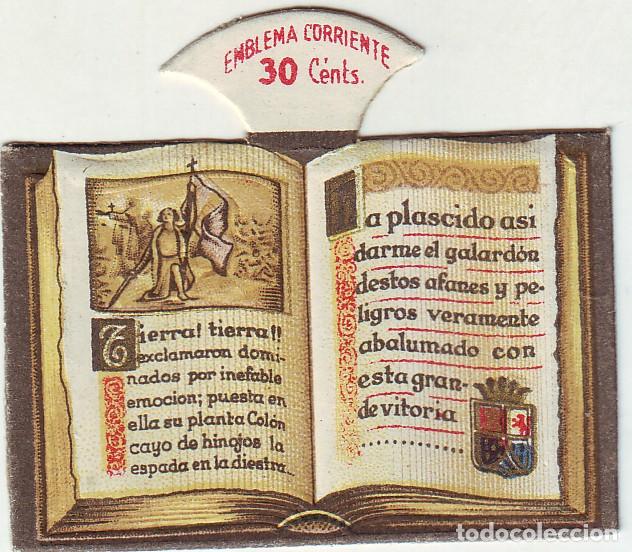 EMBLEMA CORRIENTE
30 Cénts.
Tierra! tierra!!
exclamaron domi-
nados por inefable
emocion; puesta en
ella su planta Colón
cayo de hinojos la
espada en la diestra...
Ha plascido asi
darme el galardón
destos afanes y pe-
ligros veramente
abalumado con
esta gran-
de vitoria
..............
todocoleccion.net